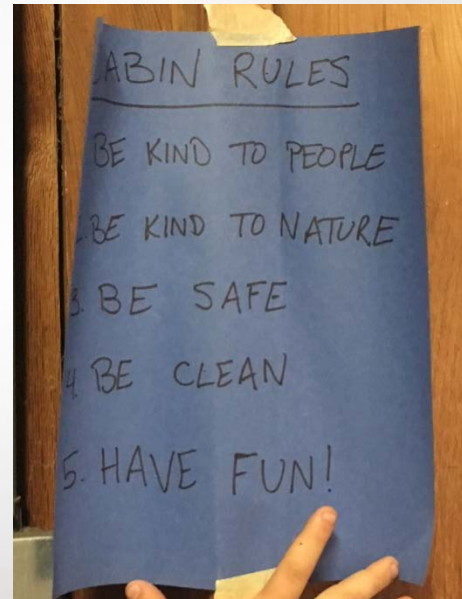 CABIN RULES
BE KIND TO PEOPLE
2. BE KIND TO NATURE
3. BE SAFE
4. BE CLEAN
5. HAVE FUN!